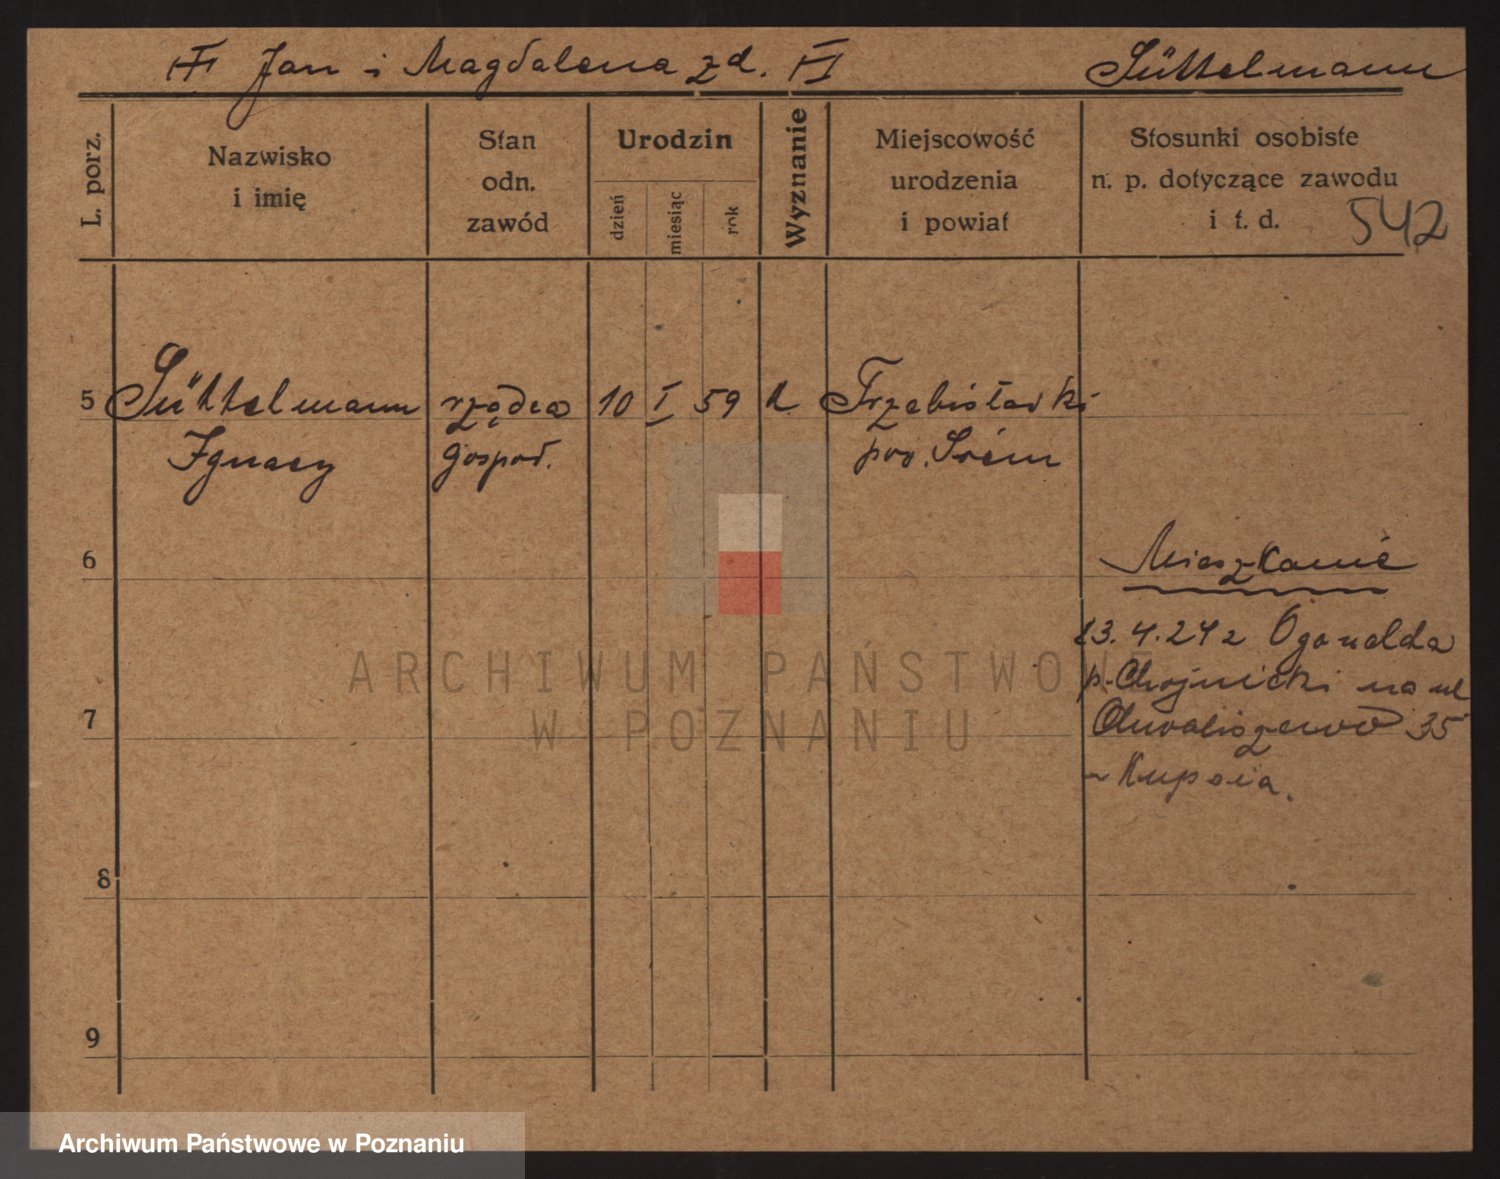 Jan i Magdalena zd.
Süttelmann
L. porz.
Nazwisko
i imię
Stan
odn.
zawód
Urodzin
dzień
miesiąc
rok
Wyznanie
Miejscowość
urodzenia
i powiat
Stosunki osobiste
n. p. dotyczące zawodu
i t. d.
542
5 Süttelmann rządca 10 I 59 k Trzebisławki
Ignacy gospod. pow. Śrem
6
Mieszkanie
13.4.24 z Ogonelda
p. Chojnicki na ul
7
Chwaliszewo 35
u Kupsia.
8
9
ARCHIWUM PAŃSTWOWE
W POZNANIU
Archiwum Państwowe w Poznaniu